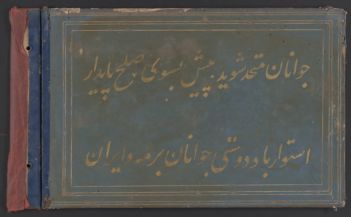 جوانان متحد شوید پیش بسوی صلح پایدار
استوار باد دوستی جوانان برمه و ایران